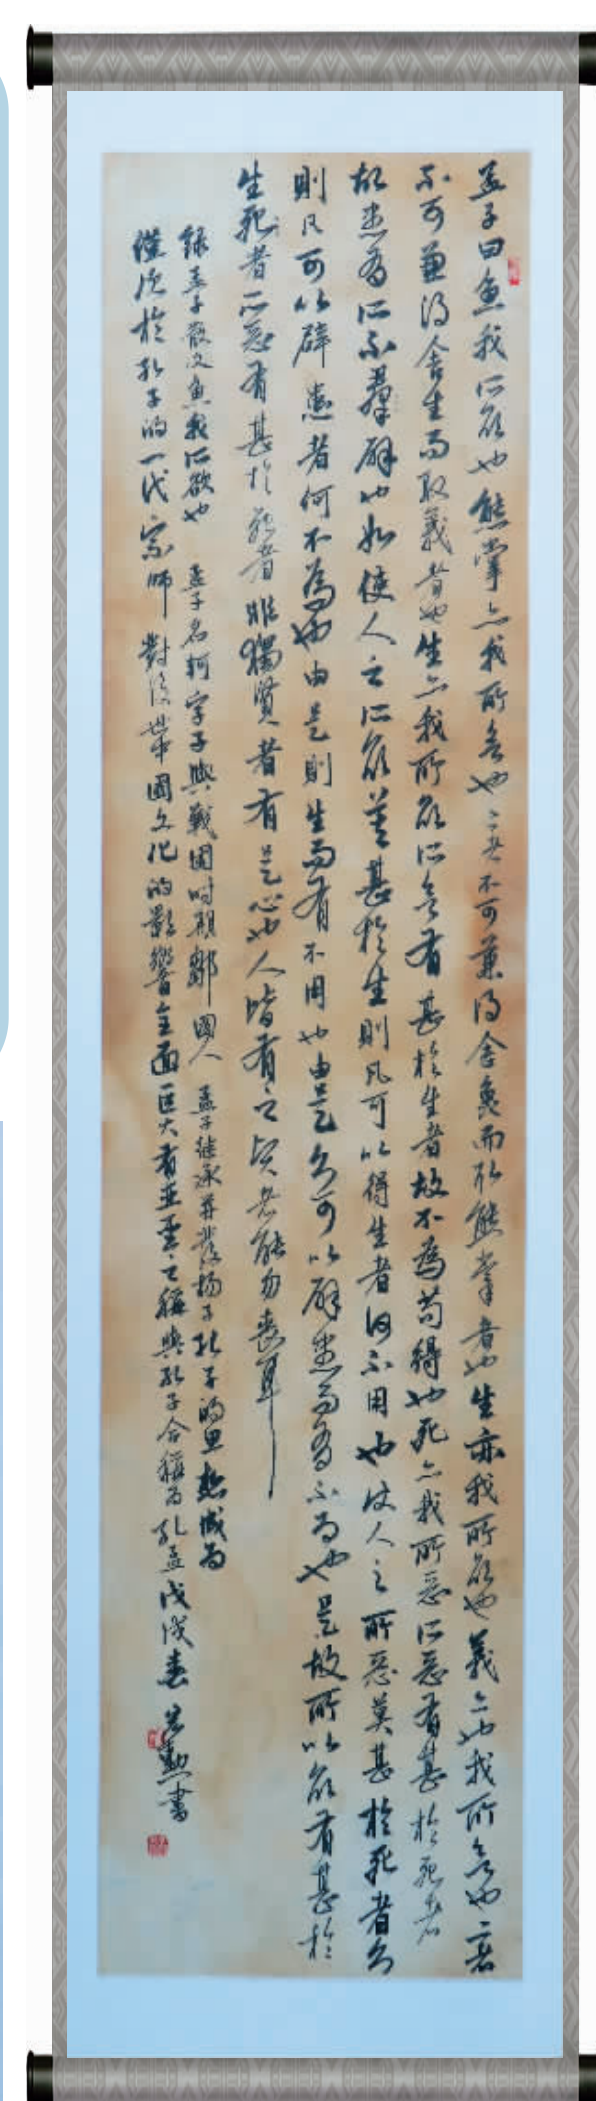 孟子曰魚我所欲也熊掌亦我所欲也二者不可兼得舍魚而取熊掌者也生亦我所欲也義亦也我所欲也二者
不可兼得舍生而取義者也生亦我所欲所欲有甚於生者故不為苟得也死亦我所惡所惡有甚於死者
故患有所不辟也如使人之所欲莫甚於生則凡可以得生者何不用也使人之所惡莫甚於死者則
則凡可以辟患者何不為也由是則生而有不用也由是則可以辟患而有不為也是故所以欲有甚於
生死者所惡有甚於死者非獨賢者有是心也人皆有之賢者能勿喪耳
錄孟子散文魚我所欲也 孟子名軻字子輿戰國時期鄒國人 孟子繼承並發揚了孔子的思想成為
僅次於孔子的一代宗師 對後世中國文化的影響全面巨大有亞聖之稱與孔子合稱為孔孟戊戌春 勳書